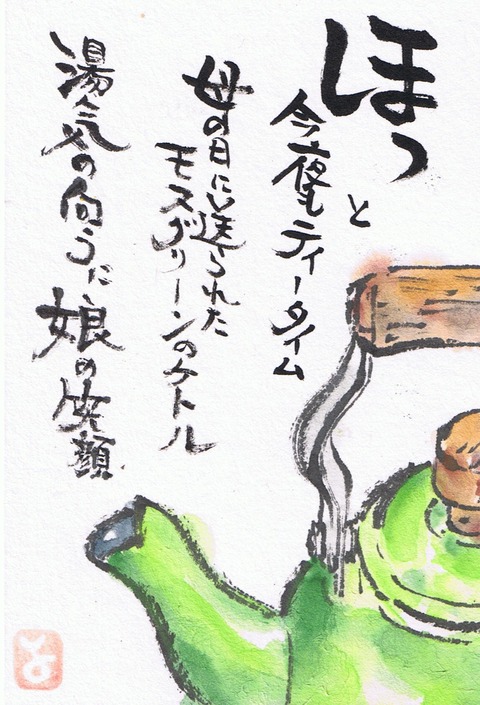 ほっ
と
今 もティータイム
母の日に送られた
モスグリーンのケトル
湯気の向うに娘の笑顔